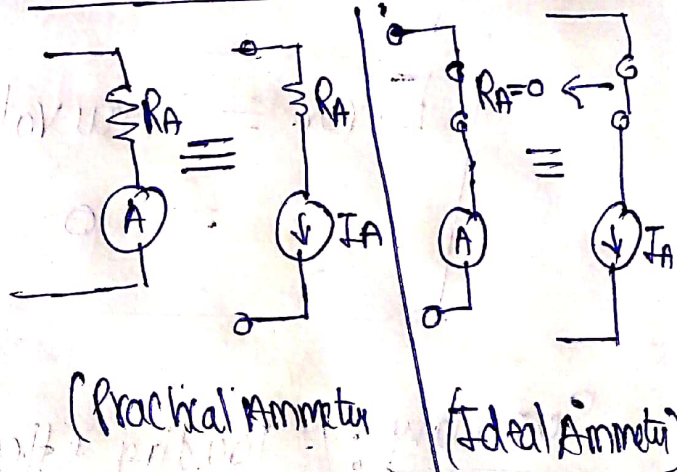 RA
A
RA
IA
(Practical Ammeter
RA=0
A
IA
(Ideal Ammeter)